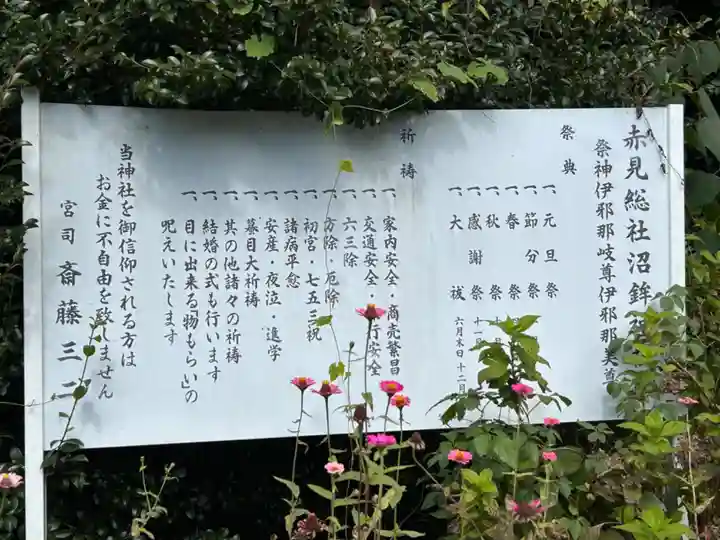 赤見総社沼鉾
祭神伊邪那岐尊伊邪那美尊
祭典
一、元旦祭
一、節分祭
一、春祭
一、秋祭
一、感謝祭 十一
一、大祓 六月末日 十二月
祈祷
一、家内安全・商売繁昌
一、交通安全・行安全
一、六三除
一、方除・厄除
一、初宮・七五三祝
一、諸病平愈
一、安産・夜泣・進学
一、墓目大祈祷
一、其の他諸々の祈祷
一、結婚の式も行います
一、目に出来る「物もらい」の
呪えいたします
当神社を御信仰される方は
お金に不自由を致しません
宮司 斎藤三